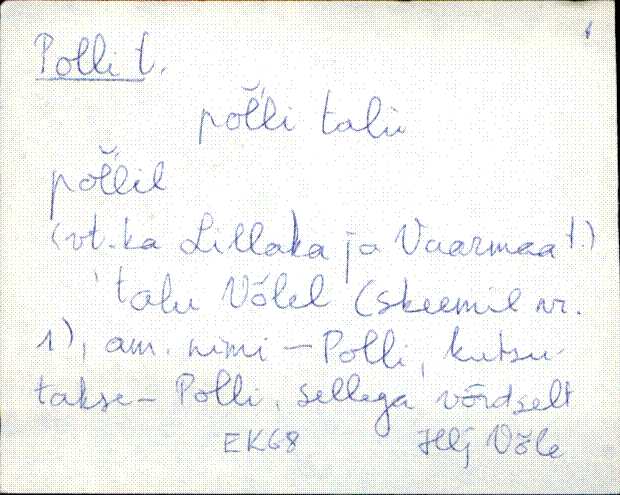 Polli t.
pol̆'li talu
pol̆'lil
(vt. ka Lillaka ja Vaarmaa t.)
talu Võlel (skeemil nr.
1), am. nimi – Polli, kutsu-
takse – Polli, sellega võrdselt
EK68 Hlj Võle